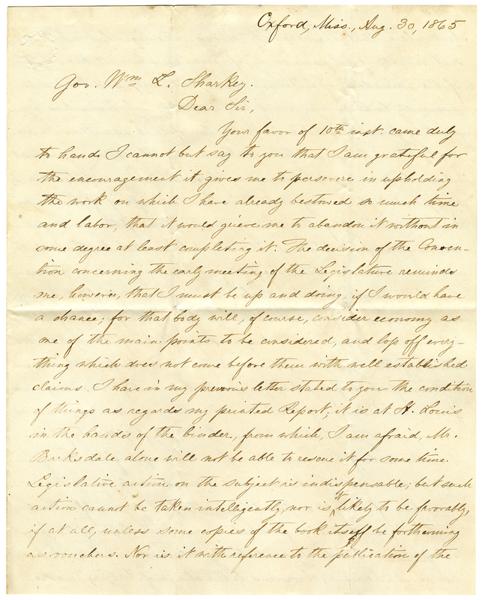 Oxford, Miss., Aug. 30, 1865
Gov. Wm L. Sharkey.
Dear Sir,
Your favor of 10th inst. came duly
to hand. I cannot but say to you that I am grateful for
the encouragement it gives me to persevere in upholding
the work on which I have already bestowed so much time
and labor, that it would grieve me to abandon it without in
some degree at least completing it. The decision of the Conven-
tion concerning the early meeting of the Legislature reminds
me, however, that I must be up and doing, if I would have
a chance; for that body will, of course, consider economy as
one of the main points to be considered, and lop off every-
thing which does not come before them with well established
claims. I have in my previous letter stated to you the condition
of things as regards my printed Report; it is at St. Louis
in the hands of the binder, from which, I am afraid, Mr.
Barksdale alone will not be able to rescue it for some time.
Legislative action on the subject is indispensable; but such
action cannot be taken intelligently, nor is it likely to be favorable,
if at all, unless some copies of the book itself be forthcoming
as vouchers. Nor is it with reference to the publication of the